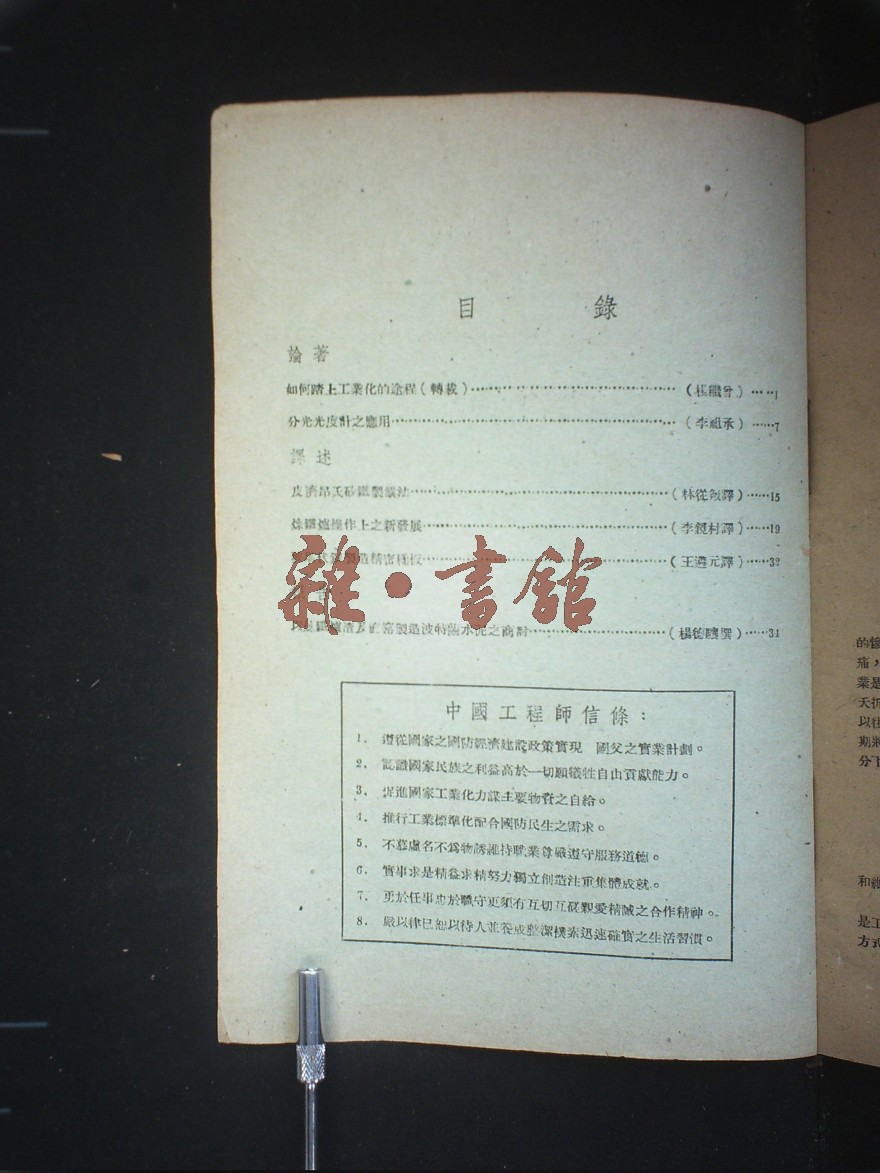 目錄
論著
如何踏上工業化的途程(轉載)……(楊繼曾)……1
分光光度計之應用……(李祖承)……7
譯述
皮濟昂氏矽鐵製鎂法……(林從敏譯)……15
煉鐵爐操作上之新發展……(李鏡村譯)……19
製造精密樣板……(王遵元譯)……32
渣及直窰製造波特蘭水泥之商討……(楊德驤撰)……34
雜·書館
中國工程師信條:
1. 遵從國家之國防經濟建設政策實現 國父之實業計劃。
2. 認識國家民族之利益高於一切願犧牲自由貢獻能力。
3. 促進國家工業化力謀主要物資之自給。
4. 推行工業標準化配合國防民生之需求。
5. 不慕虛名不爲物誘維持職業尊嚴遵守服務道德。
6. 實事求是精益求精努力獨立創造注重集體成就。
7. 勇於任事忠於職守更須有互切互磋親愛精誠之合作精神。
8. 嚴以律己恕以待人並養成整潔樸素迅速確實之生活習慣。
痛,
業是
夭折
以往
期將
和維
是工
方式